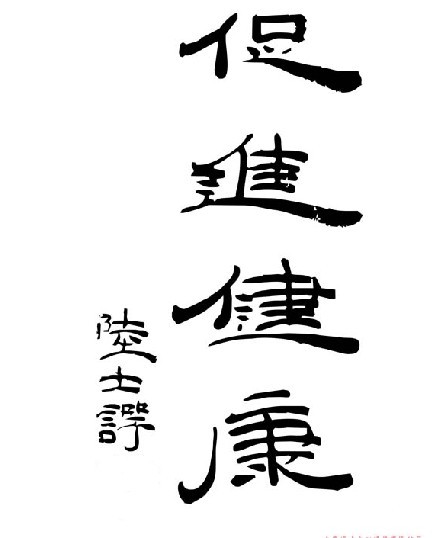 促進健康
陸士諤